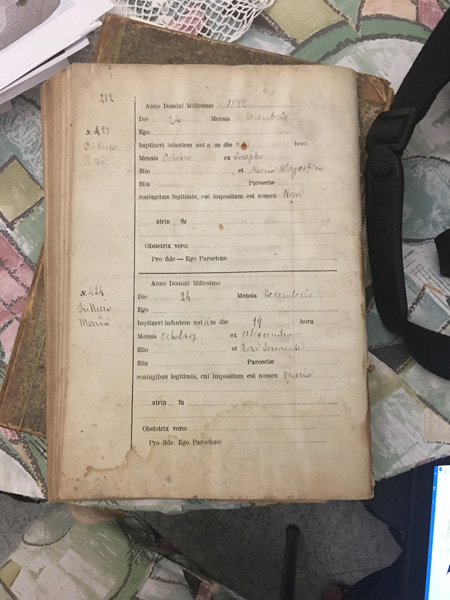 212
Anno Domini Millesimo
Die 24 Mensis Decembris
N. 423
Ego
baptizavi infantem nat a m die hora
Rosa
Mensis Octobris ex Josepho
filio et Maria D'Agostino
filia Paroeciæ
coniugibus legitimis, cui impositum est nomen Rosa
atrin fu
Obstetrix vero:
Pro fide — Ego Parochus:
Anno Domini Millesimo
N. 424
Die 24 Mensis Decembris
Ego
Maria
baptizavi infantem nat a m die 19 hora
Mensis Octobris ex Alexandro
filio et Rosa
filia Paroeciæ
coniugibus legitimis, cui impositum est nomen Maria
atrin fu
Obstetrix vero:
Pro fide. Ego Parochus: